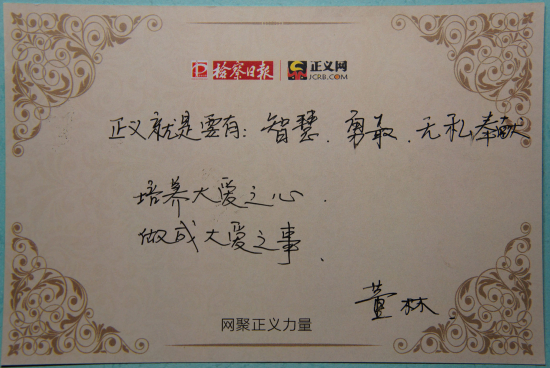 检察日报 正义网
JCRB.COM
正义就是要有：智慧、勇敢、无私奉献
培养大爱之心、
做成大爱之事、
董林
网聚正义力量